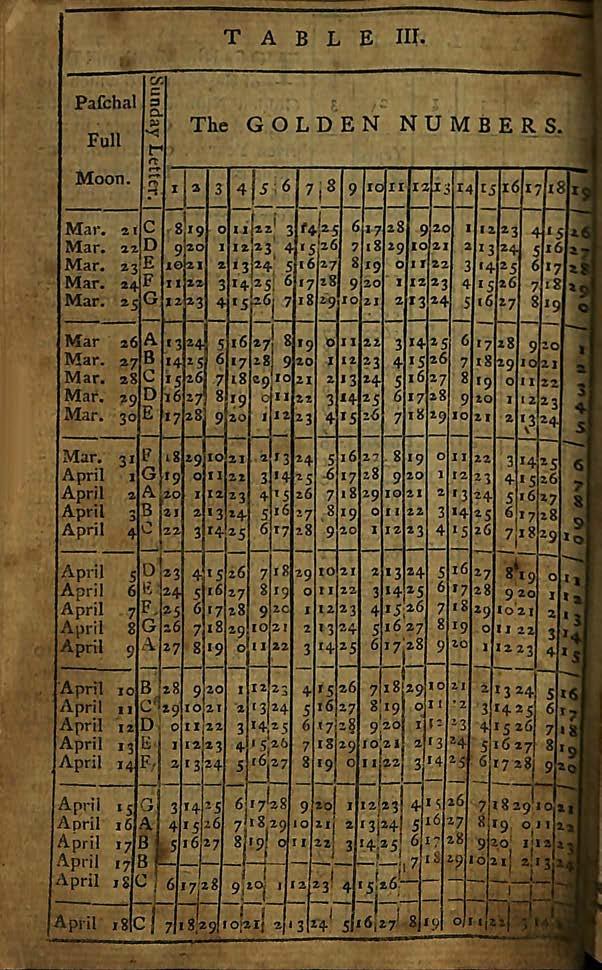 TABLE III.
Paſchal Full Moon.
Sunday Letter.
The GOLDEN NUMBERS.
1 2 3 4 5 6 7 8 9 10 11 12 13 14 15 16 17 18 19
Mar. 21 C 8 19 0 11 22 3 14 25 6 17 28 9 20 1 12 23 4 15 26
Mar. 22 D 9 20 1 12 23 4 15 26 7 18 29 10 21 2 13 24 5 16 27
Mar. 23 E 10 21 2 13 24 5 16 27 8 19 0 11 22 3 14 25 6 17 28
Mar. 24 F 11 22 3 14 25 6 17 28 9 20 1 12 23 4 15 26 7 18 29
Mar. 25 G 12 23 4 15 26 7 18 29 10 21 2 13 24 5 16 27 8 19 0
Mar 26 A 13 24 5 16 27 8 19 0 11 22 3 14 25 6 17 28 9 20 1
Mar. 27 B 14 25 6 17 28 9 20 1 12 23 4 15 26 7 18 29 10 21 2
Mar. 28 C 15 26 7 18 29 10 21 2 13 24 5 16 27 8 19 0 11 22 3
Mar. 29 D 16 27 8 19 0 11 22 3 14 25 6 17 28 9 20 1 12 23 4
Mar. 30 E 17 28 9 20 1 12 23 4 15 26 7 18 29 10 21 2 13 24 5
Mar. 31 F 18 29 10 21 2 13 24 5 16 27 8 19 0 11 22 3 14 25 6
April 1 G 19 0 11 22 3 14 25 6 17 28 9 20 1 12 23 4 15 26 7
April 2 A 20 1 12 23 4 15 26 7 18 29 10 21 2 13 24 5 16 27 8
April 3 B 21 2 13 24 5 16 27 8 19 0 11 22 3 14 25 6 17 28 9
April 4 C 22 3 14 25 6 17 28 9 20 1 12 23 4 15 26 7 18 29 10
April 5 D 23 4 15 26 7 18 29 10 21 2 13 24 5 16 27 8 19 0 11
April 6 E 24 5 16 27 8 19 0 11 22 3 14 25 6 17 28 9 20 1 12
April 7 F 25 6 17 28 9 20 1 12 23 4 15 26 7 18 29 10 21 2 13
April 8 G 26 7 18 29 10 21 2 13 24 5 16 27 8 19 0 11 22 3 14
April 9 A 27 8 19 0 11 22 3 14 25 6 17 28 9 20 1 12 23 4 15
April 10 B 28 9 20 1 12 23 4 15 26 7 18 29 10 21 2 13 24 5 16
April 11 C 29 10 21 2 13 24 5 16 27 8 19 0 11 22 3 14 25 6 17
April 12 D 0 11 22 3 14 25 6 17 28 9 20 1 12 23 4 15 26 7 18
April 13 E 1 12 23 4 15 26 7 18 29 10 21 2 13 24 5 16 27 8 19
April 14 F 2 13 24 5 16 27 8 19 0 11 22 3 14 25 6 17 28 9 20
April 15 G 3 14 25 6 17 28 9 20 1 12 23 4 15 26 7 18 29 10 21
April 16 A 4 15 26 7 18 29 10 21 2 13 24 5 16 27 8 19 0 11 22
April 17 B 5 16 27 8 19 0 11 22 3 14 25 6 17 28 9 20 1 12 23
April 17 B 7 18 29 10 21 2 13 24
April 18 C 6 17 28 9 20 1 12 23 4 15 26
April 18 C 7 18 29 10 21 2 13 24 5 16 27 8 19 0 11 22 3